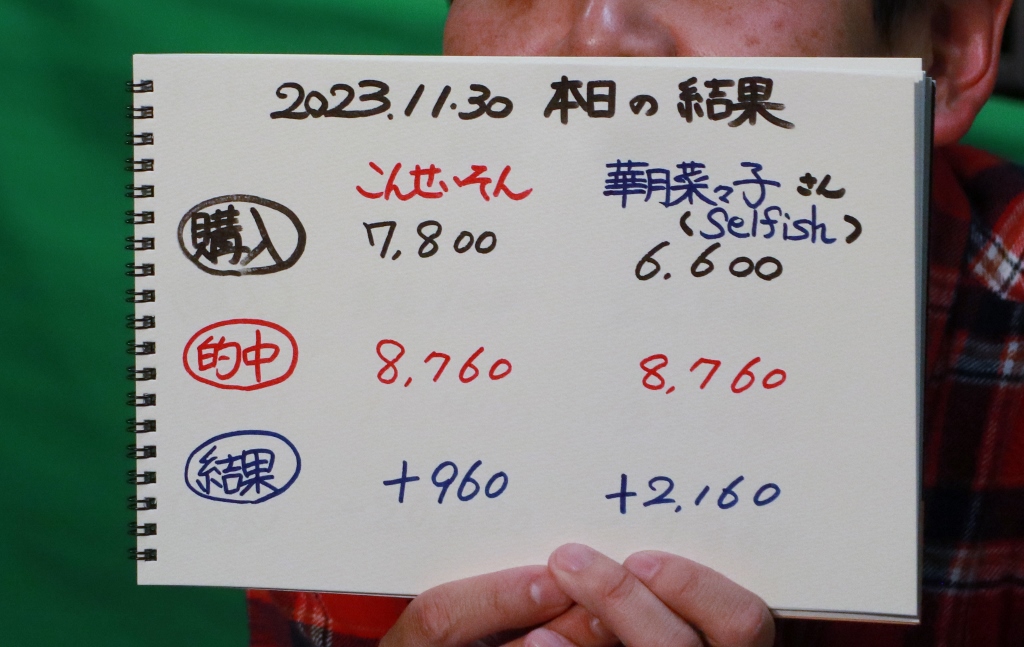 2023.11.30 本日の結果
こんせいそん 華月菜々子 さん
(Selfish)
購入 7,800 6.600
的中 8,760 8,760
結果 +960 +2,160